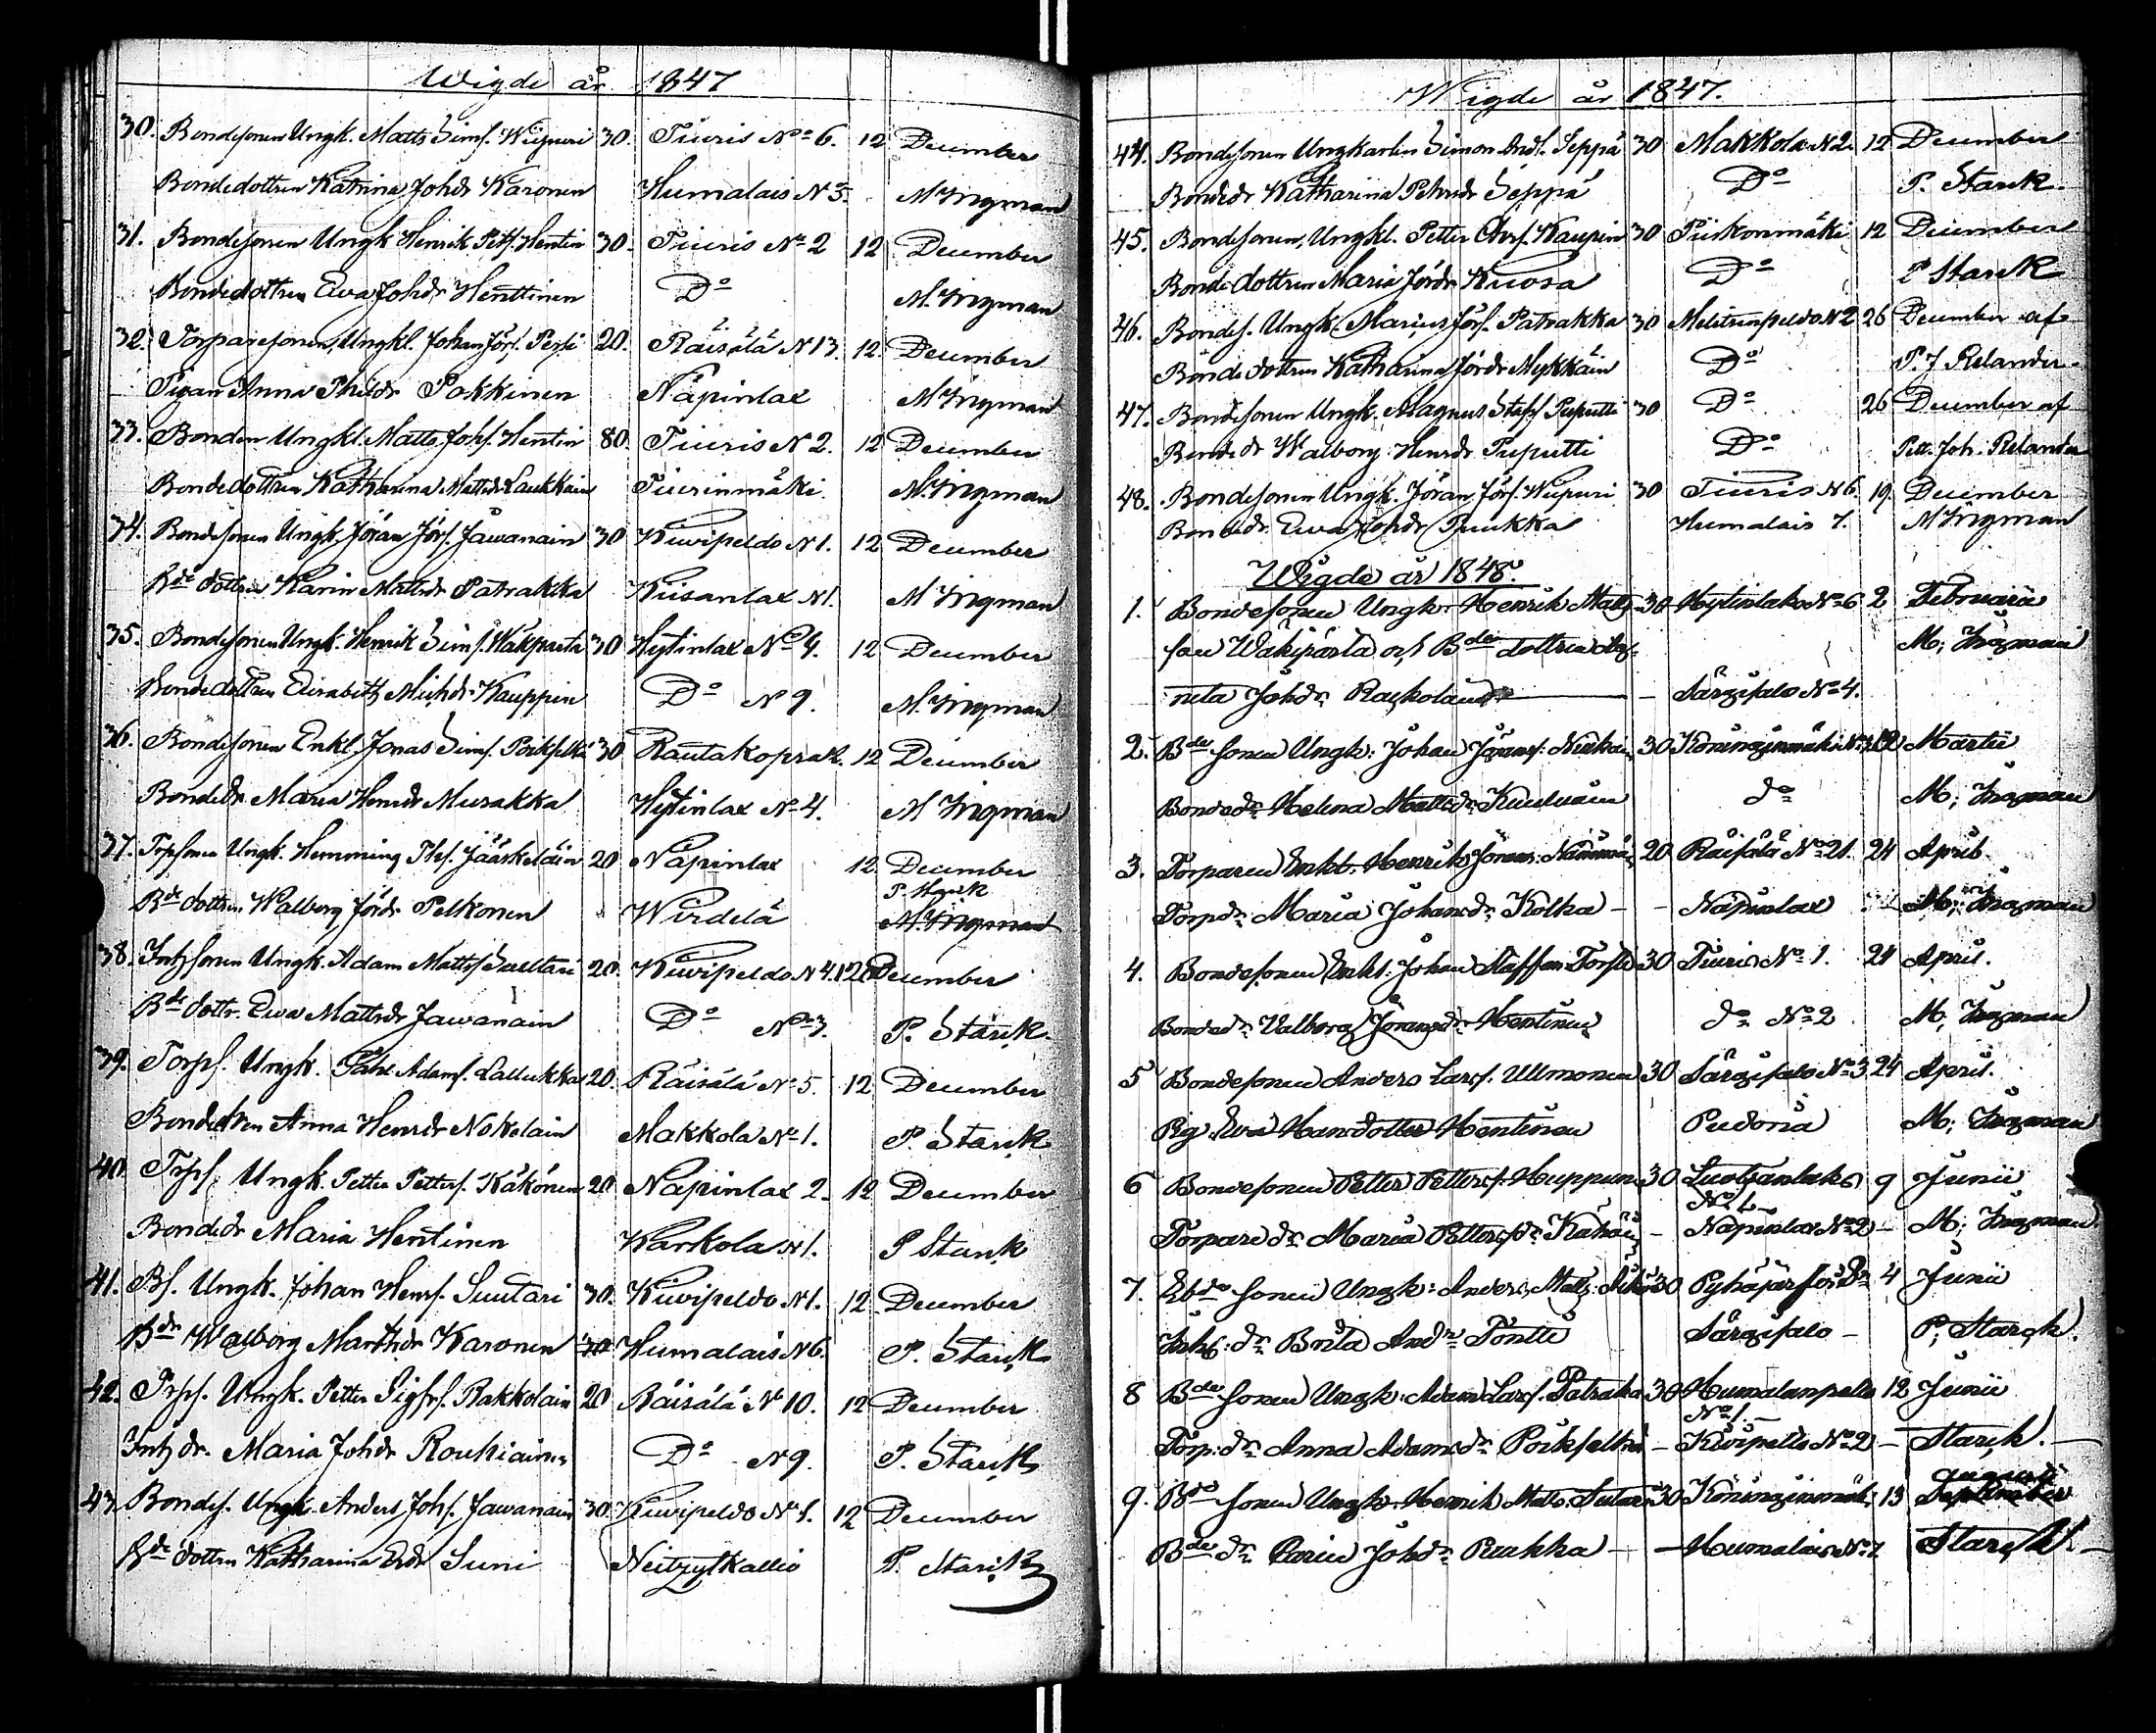 Wigde år 1847
30. Bondesonen Ungk. Matts Simf. Wiipuri 30. Tiuris No 6. 12 December
Bondedottren Katrina Johdr Karonen Humalais N 5. M Ingman
31. Bondesonen Ungk Henrik Petf. Hentin 30. Tiuris No 2 12 December
Bondedottren Ewa Johdr Henttinen Do M. Ingman
32. Torparesonen, Ungkl. Johan Jörf. Persi 20. Räisälä N 13. 12. December
Pigan Anna Phildr Pakkinen Näpinlax M Ingman
33. Bonden Ungkl. Matts Johf. Hentin 80. Tiuris N 2. 12 December
Bondedottren Katharina Mattsdr Laukkain Tiurinmäki M. Ingman
34. Bondesonen Ungk. Jöran Jörf. Jawanain 30 Kiwipeldo N 1. 12 December
Bde dottren Karin Mattsdr Patrakka Kiisanlax N 1. M Ingman
35. Bondesonen Ungk. Henrik Simf. Wäkiparta 30 Hytinlax No 4. 12 December
Bondedottren Elisabeth Michdr Kauppin Do N 9. M. Ingman
36. Bondesonen Enkl. Jonas Simf. Poikselkä 30 Rautakopra 2. 12 December
Bondedr Maria Henrdr Musakka Hytinlax No 4. M Ingman
37. Trpsonen Ungk. Hemming Thf. Jääskeläin 20 Näpinlax 12. December
P. Starck
Bde dottren Walborg Jördr Pelkonen Wirdelä M. Ingman
38. Inhysonen Ungk. Adam Mattsf Sultari 20. Kiwipeldo N 4. 12 December
Bde dottr. Ewa Mattsdr Jawanain Do No 3. P. Starck.
39. Torpf. Ungk. Påhl Adamf. Lallukka 20. Räisälä No 5. 12 December
Bondedtren Anna Henrdr Nokelain Makkola No 1. P. Starck
40. Trpf. Ungk. Petter Pettersf. Käkönen 20 Näpinlax 2. 12 December
Bondedr Maria Hentinen Karkola N 1. P Starck
41. Bf. Ungk. Johan Henrf. Suutari 30. Kiwipeldo N 1. 12. December
Bdr Walborg Martisdr Karonen 30 Humalais N 6. P. Starck
42. Trpf. Ungk. Petter Sigfrf. Rakkolain 20 Räisälä No 10. 12 December
Inhy dr. Maria Johdr Rouhiain Do N 9. P. Starck
43. Bondef. Ungk. Anders Johf. Jawanain 30. Kiwipeldo No 1. 12 December
Bde dottren Katharina Erdr Suni Neitzytkallio P. Starck
Wigde år 1847.
44. Bondesonen Ungkarlen Simon Andf. Seppä 30 Makkola N 2. 12 December
Bondedr Katharina Petersdr Seppä Do P. Starck
45. Bondesonen, Ungkl. Petter Chrf. Kaupin 30 Piiskonmäki 12 December
Bondedottren Maria Jördr Kuosa Do P Starck
46. Bondef. Ungk. Marius Jörf. Patrakka 30 Melitsenpeldo N 2 26 December af
Bondedottren Katharina Jördr Mykkäin Do P. J Relander
47. Bondesonen Ungk. Magnus Staff. Puputti 30 Do 26 December af
Bondedr Walborg Henrdr Puputti Do Pett. Joh. Relander
48. Bondesonen Ungk. Jöran Jörf. Wiipuri 30 Tiuris N 6. 19. December
Bondedr. Ewa Johdr Puukka Humalais 7. M Ingman
Wigde år 1848.
1. Bondesonen Ungk. Henrik Matts- 30 Hytinlaks No 6 2 Februarii
son Wäkipärta och Bde dottren Ag- M. Ingman
neta Johdr. Rackolain — Särgisalo No 4.
2. Bde sonen Ungk. Johan Göransf. Niskain 30 Köningimäki No 12 Martii
Bondedr Helena Mattsdr Kuulain do M. Ingman
3. Torparen Enkl. Henrik Jörans. 20 Räisälä No 21. 24 April
Torpdr Maria Johansdr Kolka — Näpinlax M. Ingman
4. Bondesonen Enkl. Johan Staffan Torsti 30 Tiuris No 1. 24 April.
Bondedr Valborg Jöransdr Hentinen do No 2 M. Ingman
5 Bondesonen Anders Larsf. Ullmonen 30 Särgisalo No 3 24 April.
Pig. Eva Hansdotter Hentinen Pudoria M. Ingman
6 Bondesonen Petter Pettersf. Huppunen 30 Luotzanlaks 9 Junii
No 1.
Torpare dr Maria Pettersdr Käkön — Näpinlax No 2 — M. Ingman
7. Ebde sonen Ungk: Anders Matts. 30 Pyhäjärfvi 4 Junii
Inhs. dr Brita Anddr Pontti Särgisalo — P. Starck.
8 Bde sonen Ungk: Adam Larsf. Patraka 30 Humalanpelto 12 Junii
No 1.
Torp: dr Anna Adamsdr Poikselkä — Kivipelto No 2 — Starck. —
Augusti
9. Bde sonen Ungk. Henrik Matts. Sutari 30 Köningimäki 13 September
Bde dr Carin Johdr Puukka — Humalais No 7. Starck —